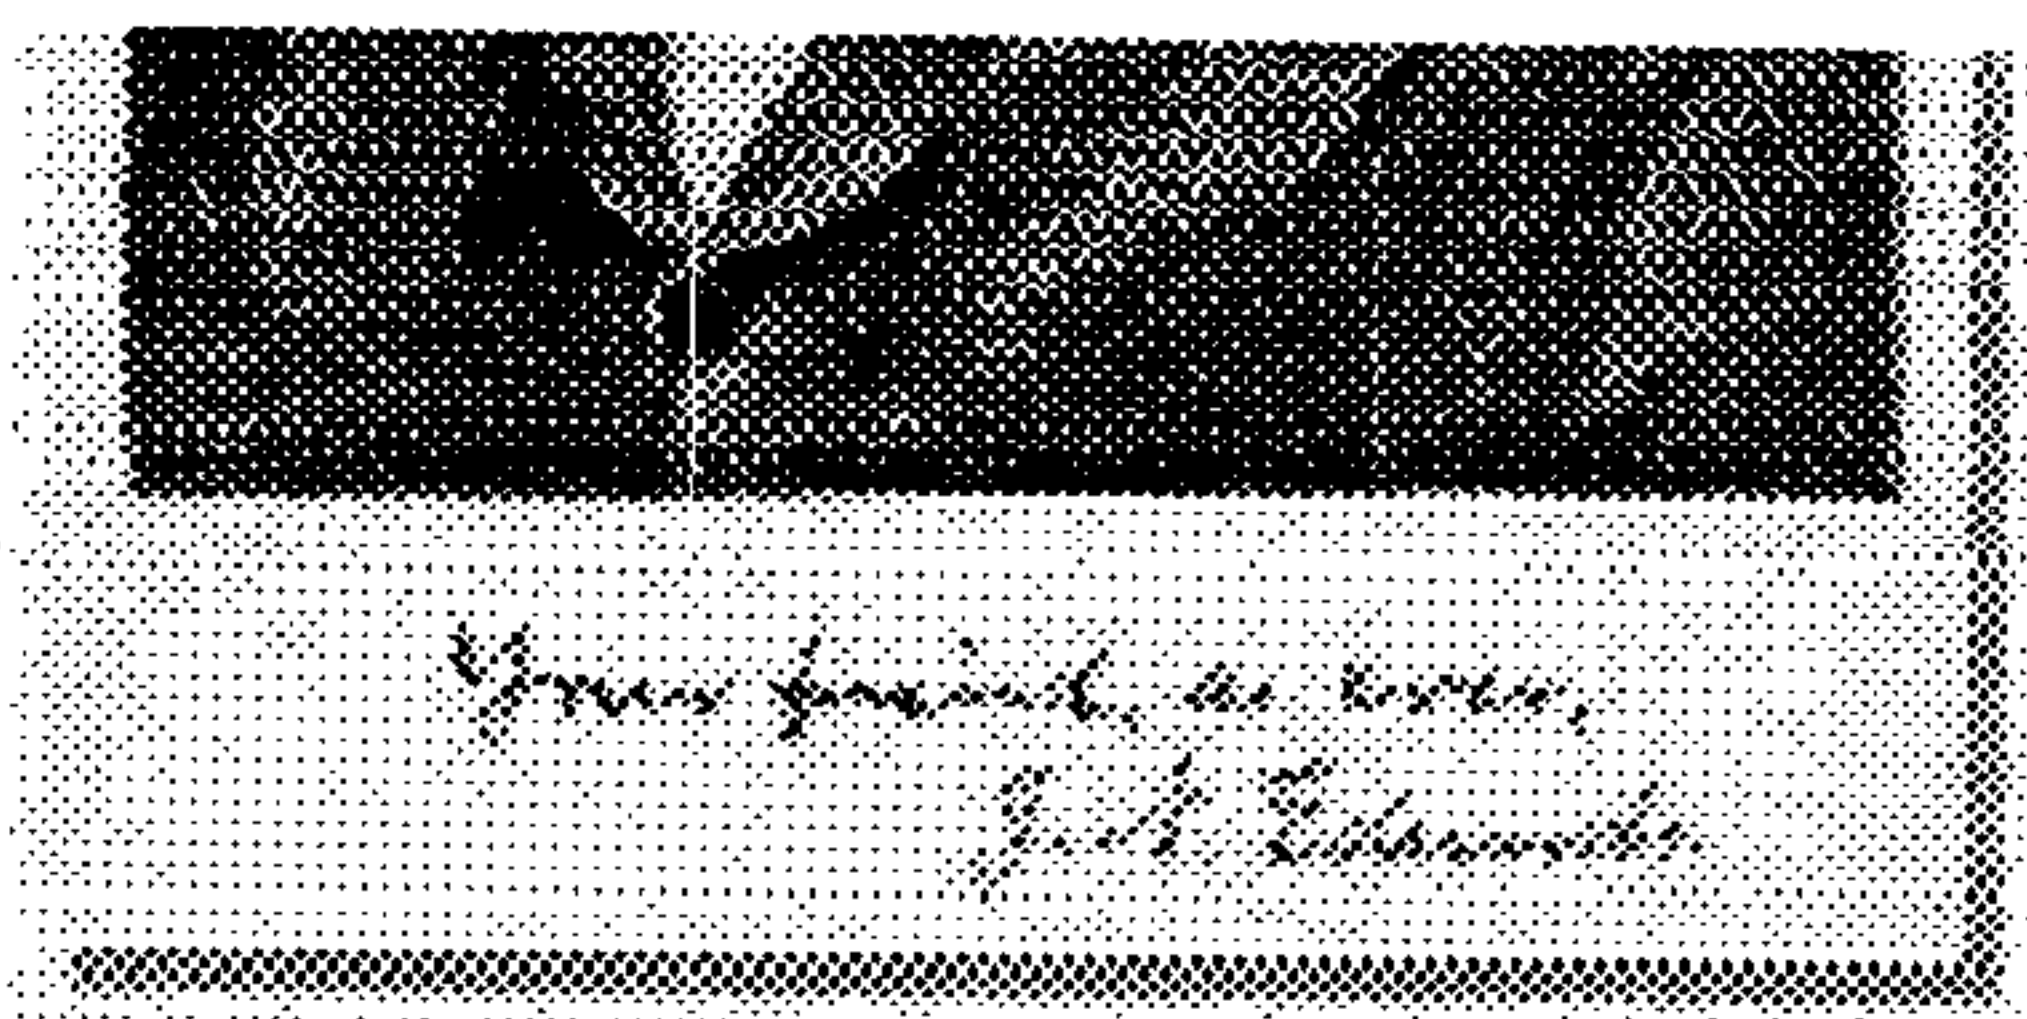 Your friend, as ever,
Jack Edwards